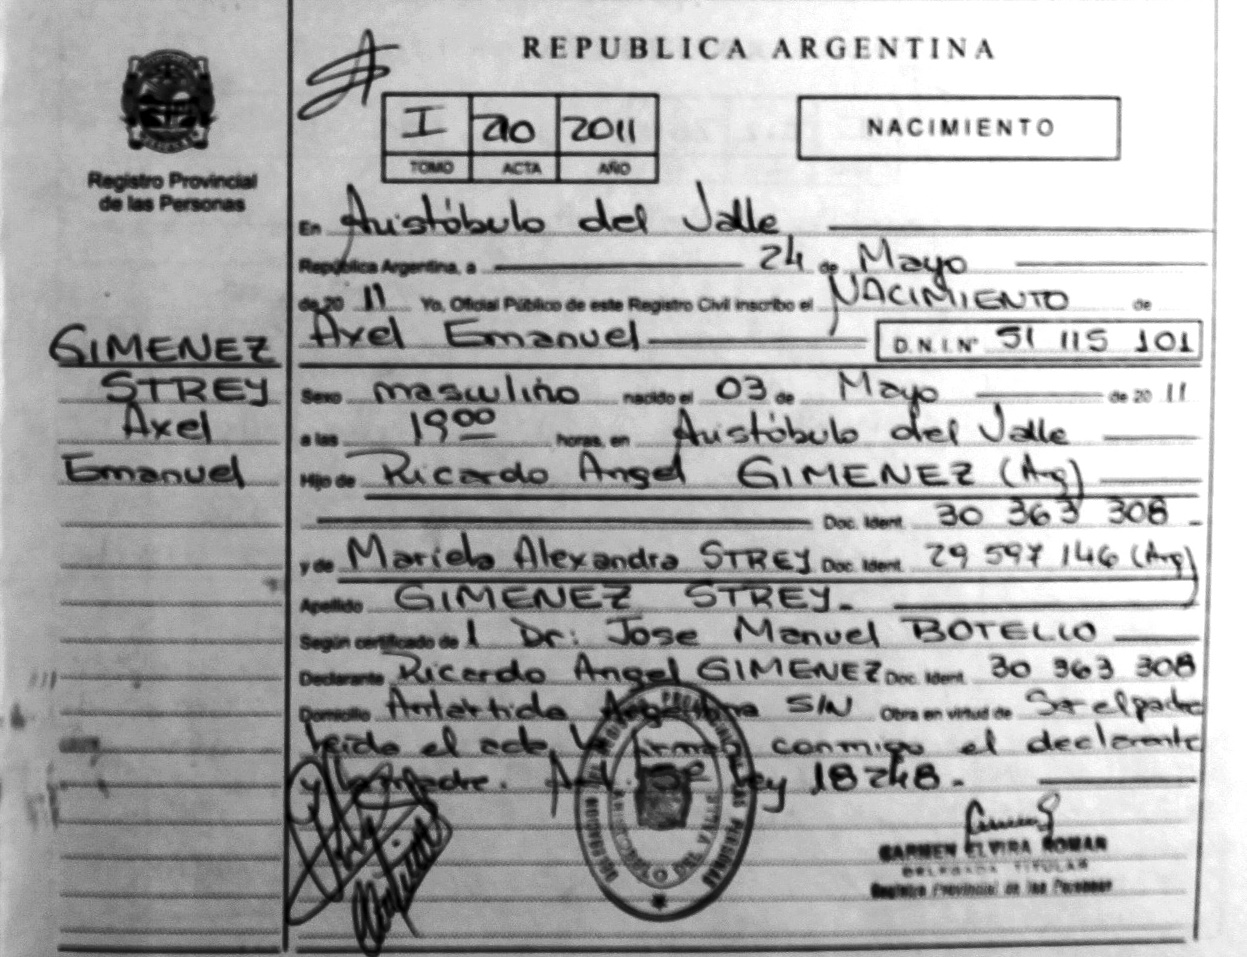 REPUBLICA ARGENTINA
I 20 2011
TOMO ACTA AÑO
NACIMIENTO
Registro Provincial
de las Personas
GIMENEZ
STREY
Axel
Emanuel
En Aristóbulo del Valle
República Argentina, a 24 de Mayo
de 20 11 Yo, Oficial Público de este Registro Civil inscribo el NACIMIENTO de
Axel Emanuel D.N.I. Nº 51 115 101
Sexo masculino nacido el 03 de Mayo de 20 11
a las 19 00 horas, en Aristóbulo del Valle
Hijo de Ricardo Angel GIMENEZ (Arg)
Doc. Ident. 30 363 308
y de Mariela Alexandra STREY Doc. Ident. 29 597 146 (Arg)
Apellido GIMENEZ STREY.
Según certificado de l Dr: Jose Manuel BOTELLO
Declarante Ricardo Angel GIMENEZ Doc. Ident. 30 363 308
Domicilio Antártida Argentina S/N Obra en virtud de Ser el padre
leida el acta, firman conmigo el declarante
y la madre. Ley 18248.
CARMEN ELVIRA ROMAN
DELEGADA TITULAR
Registro Provincial de las Personas